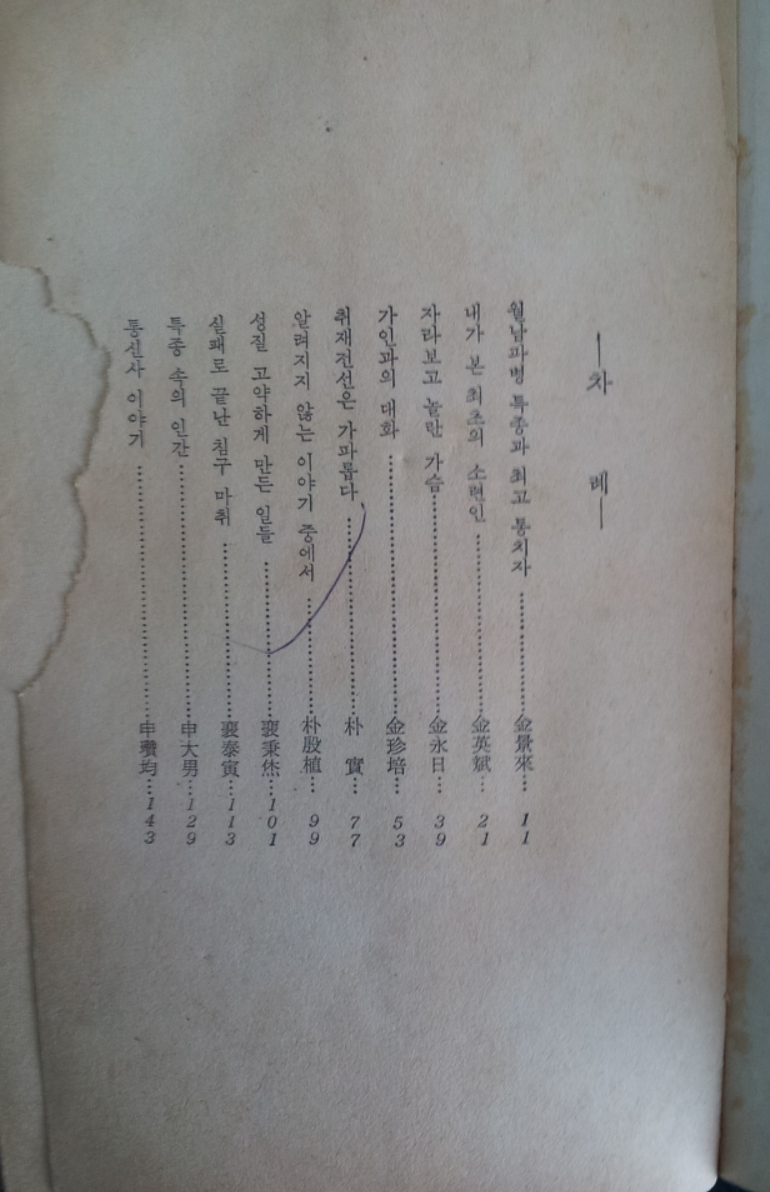 —차 례—
월남파병 특종과 최고 통치자 …… 金景來 … 11
내가 본 최초의 소련인 …… 金英斌 … 21
자라보고 놀란 가슴 …… 金永日 … 39
가인과의 대화 …… 金珍培 … 53
취재전선은 가파롭다 …… 朴 實 … 77
알려지지 않는 이야기 중에서 …… 朴殷植 … 99
성질 고약하게 만든 일들 …… 裵秉烋 … 101
실패로 끝난 침구 마취 …… 裵泰寅 … 113
특종 속의 인간 …… 申大男 … 129
통신사 이야기 …… 申瓚均 … 143